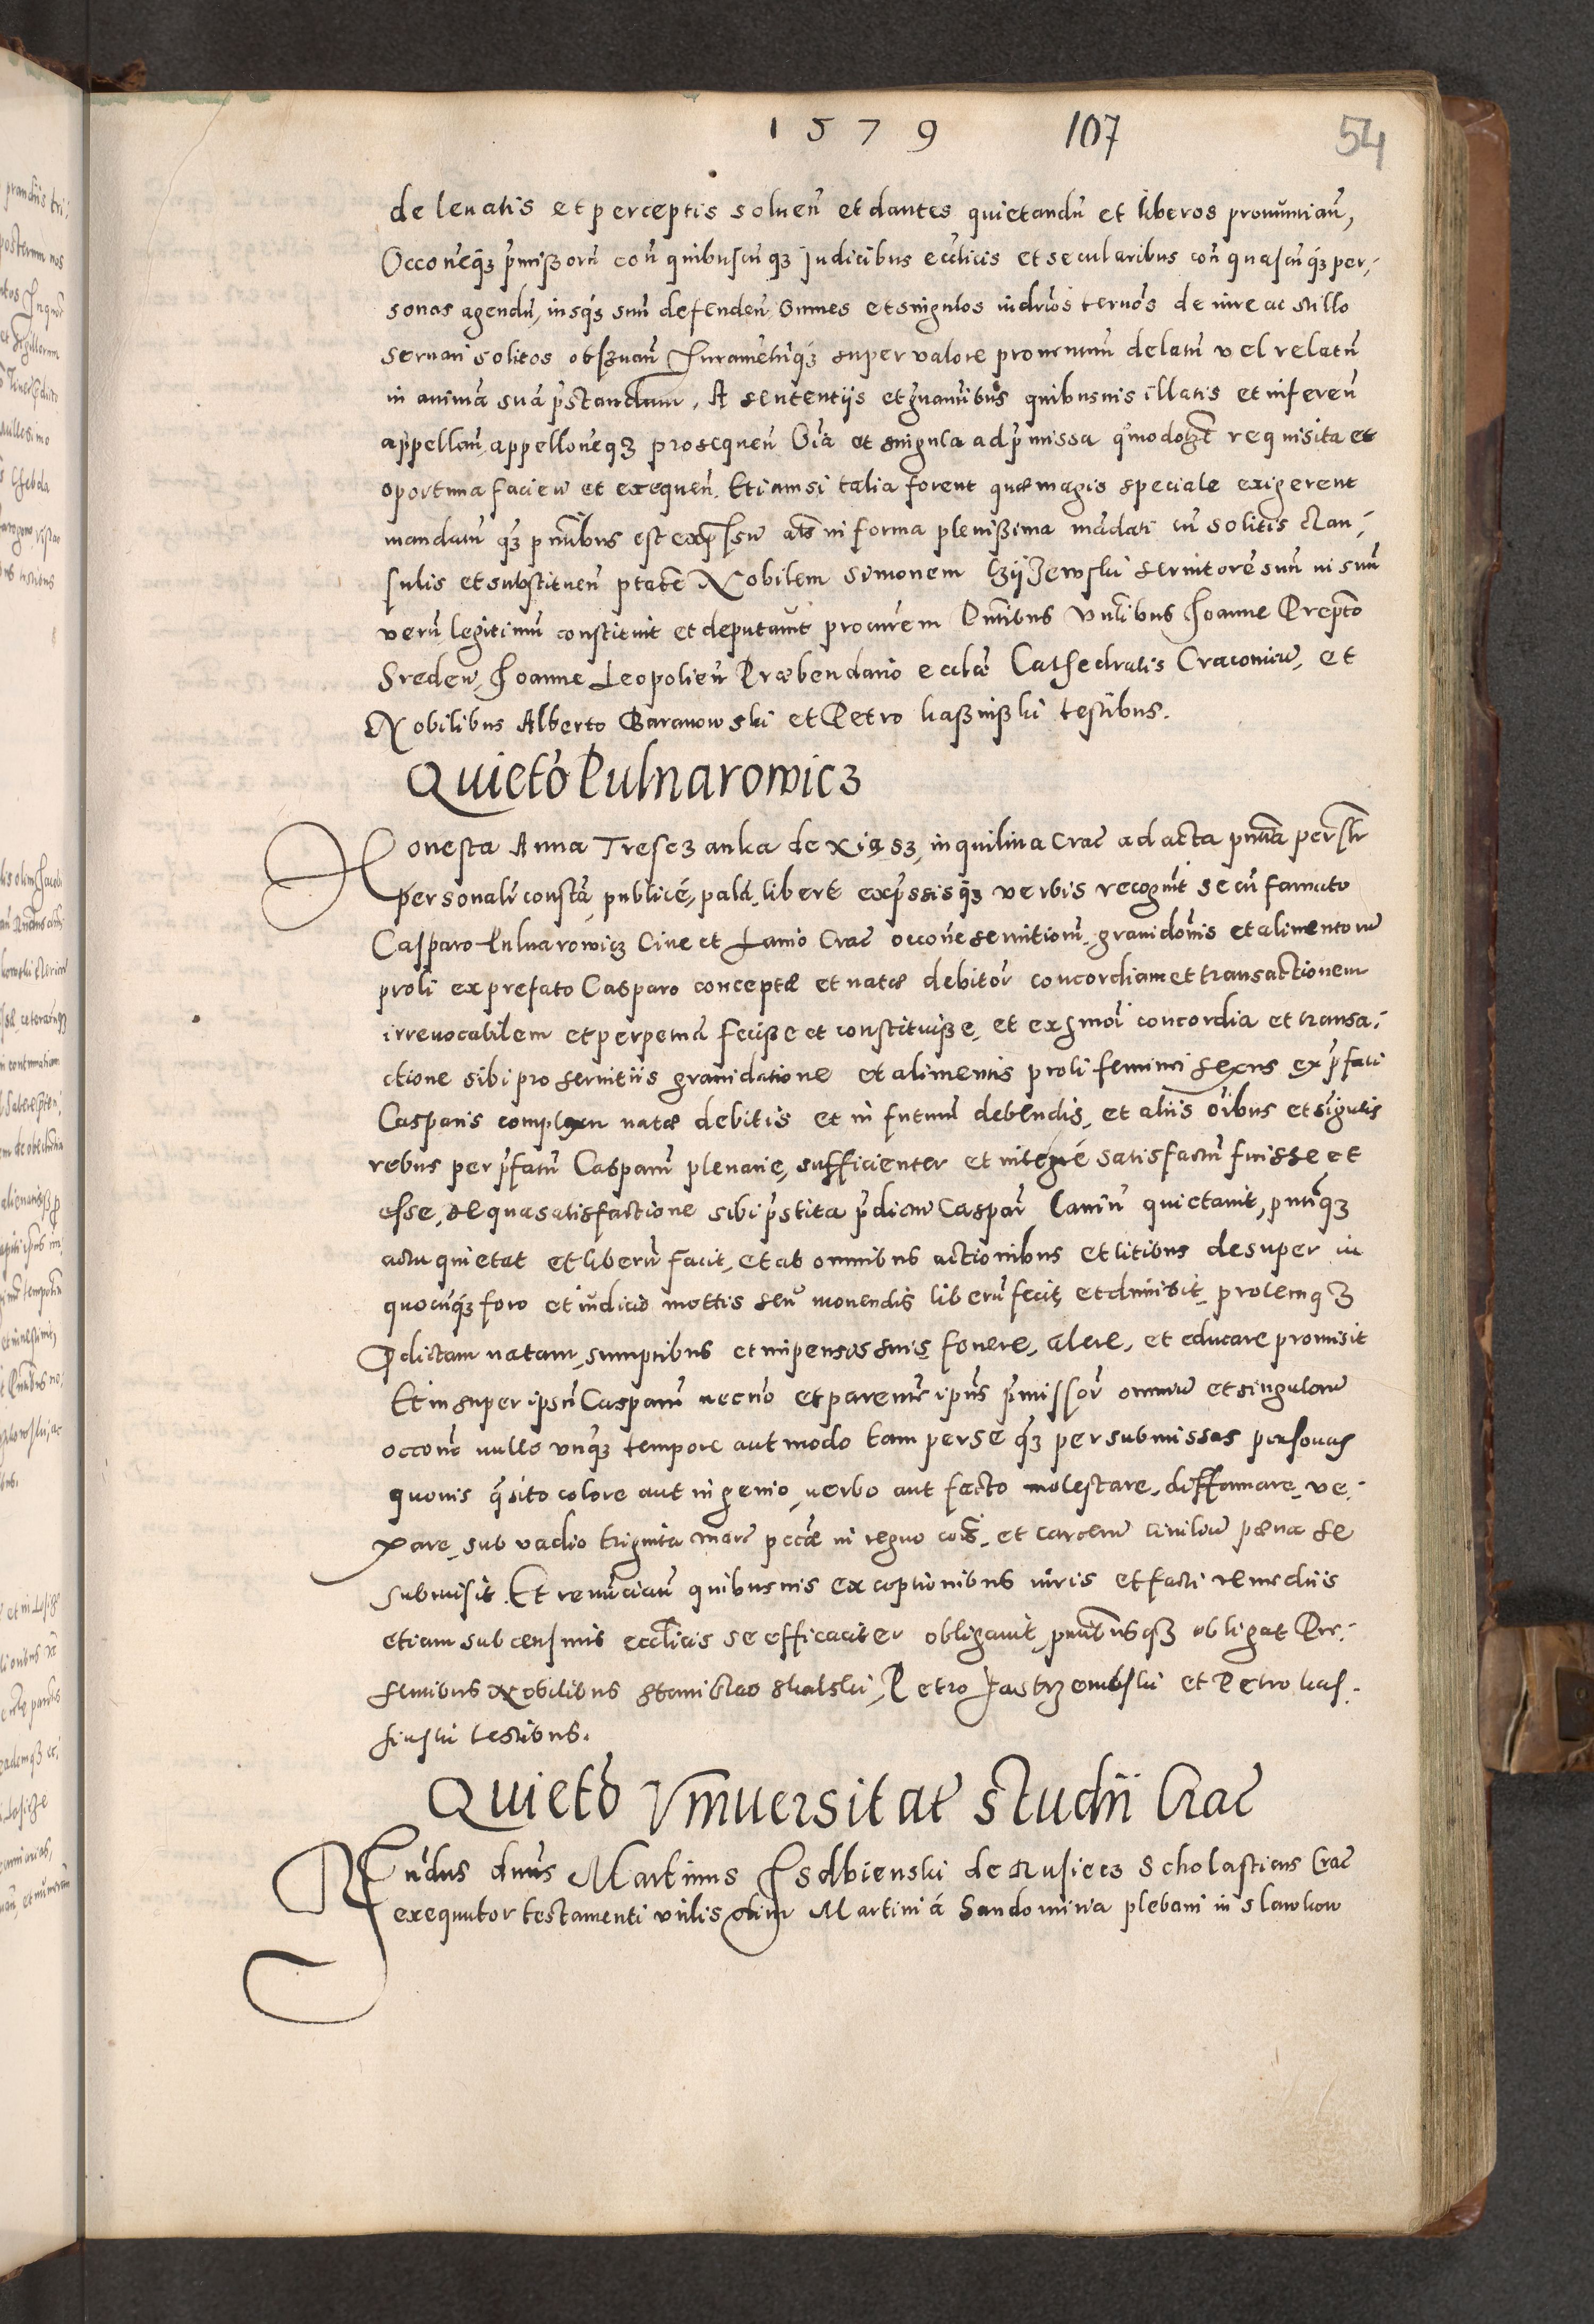 1579 107 54
de leuatis et perceptis soluen̄ et dantes quietandū et liberos pronūntian̄,
Occon̄eq₃ p̄missorū con̄ quibuscūq₃ judicibus eccl̄icis et secularibus con̄ quascūq₃ per-
sonas agendū, insq₃ suū defenden̄, Omnes et singulos iudrios termōs de iure ac stillo
seruari solitos obseruan̄ Juramentūq₃ super valore prouentuū delatū vel relatū
in animā suā p̄standum, A sententiis et gr̄uaminibus quibusuis illatis et inferen̄
appellan̄, appellon̄eq₃ prosequen̄ Oīa et singula ad p̄missa quōmodolt requisita et
oportuna facien̄ et exequen̄. Etiamsi talia forent quæ magis speciale exigerent
mandatū q₃ pn̄tibus est expssū ats in forma plenissima mādati cū solitis clau-
sulis et substituen̄ ptate Nobilem Simonem Czijzewski seruitorē suū in suū
verū legitimū constituit et deputauit procurem Pn̄tibus Vnlibus Joanne Prepto
Sreden̄, Joanne Leopolien̄ Præbendario eccl̄æ Cathedralis Cracouien̄, et
Nobilibus Alberto Baranowski et Petro kassinski testibus.
Quieto Pulnarowicz
Honesta Anna Tresczanka de Xiasz, inquilina Crac̄ ad acta pn̄tia perstr
personalr constā, publicē, palā, liberē exp̄ssisq₃ verbis recognit se cū famato
Casparo Pulnarowicz Ciue et Lanio Crac̄ occone seruitiorū, grauidonis et alimentorū
proli ex prefato Casparo conceptæ et natæ debitor̄ concordiam et transactionem
irreuocabilem et perpetuā fecisse et constituisse, et ex hmōi concordia et transa-
ctione sibi pro seruitiis grauidatione et alimentis proli feminei sexus ex p̄fati
Casparis complexu natæ debitis et in futurū debendis, et aliis oībus et sīgulis
rebus per p̄fatū Casparū plenarie, sufficienter et integrē satisfactū fuisse et
esse, de qua satisfactione sibi p̄stita p̄dictū Caspar̄ Laniū quietauit, pn̄tiq₃
actu quietat et liberū facit, et ab omnibus actionibus et litibus desuper in
quocūq₃ foro et iudicio mottis seu mouendis liberū fecit et dimisit, prolemq₃
p̄dictam natam, sumptibus et impensis suis fouere, alere, et educare promisit
Et insuper ipsū Casparū necno et parentes ipūs p̄missor̄ omniū et singulorū
occone nullo vnq₃ tempore aut modo tam per se q₃ per submissas personas
quouis q̄sito colore aut ingenio, verbo aut facto molestare, diffamare, ve-
xare, sub vadio triginta marc̄ pccæ in regno cois, et carcerū ciuiliū pæna se
submisit. Et renūcian̄ quibusuis exceptionibus iuris et facti remediis
etiam sub censuris eccl̄icis se efficaciter obligauit, pn̄tibusq₃ obligat Præ-
sentibus Nobilibus Stanislao Skalski, Petro Jastrzembski et Petro kas-
sinski testibus.
Quieto Vniuersitat̄ studii Crac̄
Rndus dnus Martinus Isdbienski de Rusiecz Scholasticus Crac̄
exequutor testamenti vnlis olim Martini á Sandomiria plebani in Slawkow